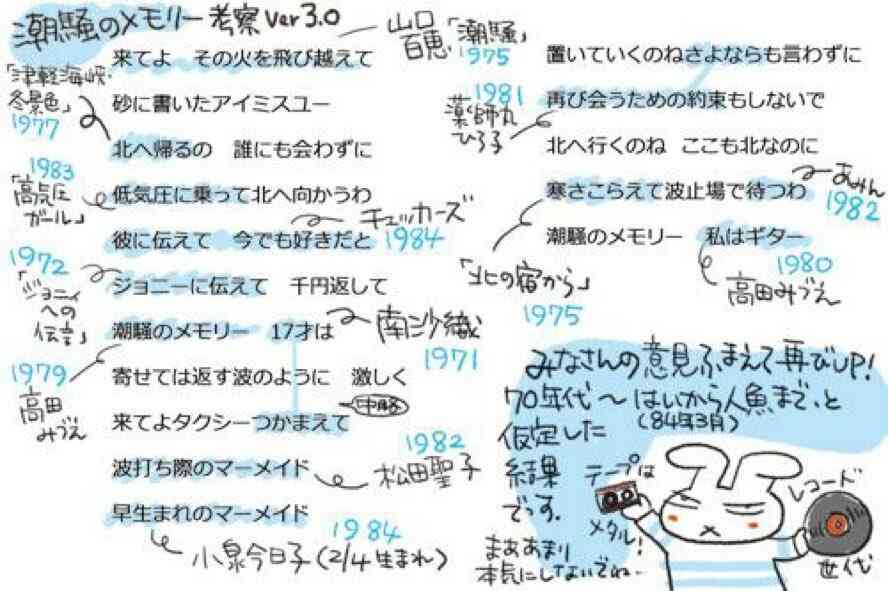 潮騒のメモリー考察ver3.0
来てよ　その火を飛び越えて
山口百恵「潮騒」
1975
砂に書いたアイミスユー
「津軽海峡・
冬景色」
1977
北へ帰るの　誰にも会わずに
1983
「高気圧
ガール」
低気圧に乗って北へ向かうわ
彼に伝えて　今でも好きだと
チェッカーズ
1984
1972
「ジョニィ
への
伝言」
ジョニーに伝えて　千円返して
潮騒のメモリー　17才は
南沙織
1971
1979
高田
みづえ
寄せては返す波のように　激しく
来てよタクシーつかまえて
波打ち際のマーメイド
1982
松田聖子
早生まれのマーメイド
1984
小泉今日子(2/4生まれ)
置いていくのねさよならも言わずに
1981
薬師丸
ひろ子
再び会うための約束もしないで
北へ行くのね　ここも北なのに
寒さこらえて波止場で待つわ
あみん
1982
潮騒のメモリー　私はギター
1980
高田みづえ
「北の宿から」
1975
みなさんの意見ふまえて再びUP!
70年代〜はいから人魚まで、と
(84年3月)
仮定した
結果
でっす.
テープは
メタル!
レコード
世代
まああまり
本気にしないでね…